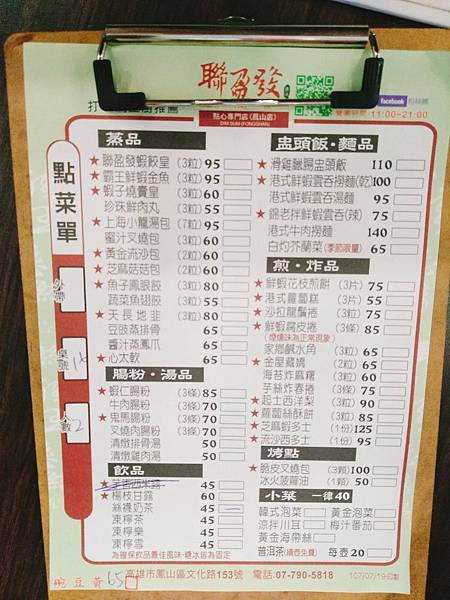 聯盈發
點心專門店(鳳山店)
DIM SUM (FONGSHAN)
facebook 粉絲團
營業時間 11:00~21:00
點菜單
外帶
桌號
人數 2
蒸品
★聯盈發蝦餃皇 (3粒) 95
★霸王鮮蝦金魚 (3粒) 95
★蝦子燒賣皇 (3粒) 60
珍珠鮮肉丸 (3粒) 55
★上海小籠湯包 (7粒) 95
蜜汁叉燒包 (3粒) 60
★黃金流沙包 (2粒) 60
★芝麻菇菇包 (2粒) 60
★魚子鳳眼餃 (3粒) 80
蔬菜魚翅餃 (3粒) 55
★天長地韭 (3粒) 80
豆豉蒸排骨 65
醬汁蒸鳳爪 65
★心太軟 65
腸粉・湯品
★蝦仁腸粉 (3條) 85
牛肉腸粉 (3條) 70
★鬼馬腸粉 (3條) 70
叉燒腸粉 (3條) 70
清燉排骨湯 50
清燉雞肉湯 50
飲品
★芋香西米露 45
★楊枝甘露 60
絲襪奶茶 45
凍檸茶 45
凍檸樂 45
凍檸雪 45
為確保飲品最佳風味,糖冰皆為固定
盅頭飯・麵品
★滑雞臘腸盅頭飯 110
★港式鮮蝦雲吞撈麵(乾) 100
港式鮮蝦雲吞湯麵 95
★錦老拌鮮蝦雲吞(辣) 75
港式牛肉撈麵 140
白灼芥蘭菜(季節限量) 65
煎・炸品
★鮮蝦花枝煎餅 (3片) 75
★港式蘿蔔糕 (3片) 55
★沙拉龍鬚捲 (3條) 75
★鮮蝦腐皮捲 (3條) 85
(煙燻味為正常現象)
家鄉鹹水角 (3粒) 65
★金屋藏嬌 (2粒) 65
海苔炸麻糬 (3粒) 60
芋絲炸春捲 (3條) 75
★起士西洋梨 (3粒) 90
★蘿蔔絲酥餅 (3粒) 85
★芝麻蝦多士 (1份) 125
★流沙西多士 (1份) 95
烤點
★脆皮叉燒包 (3顆) 100
冰火菠蘿油 (1顆) 50
小菜 一律40
韓式泡菜 黃金泡菜
涼拌川耳 梅汁番茄
黃金海帶絲
普洱茶(續壺免費) 每壺 20
豌豆黃 65
高雄市鳳山區文化路153號 電話:07-790-5818
107/07/19印製